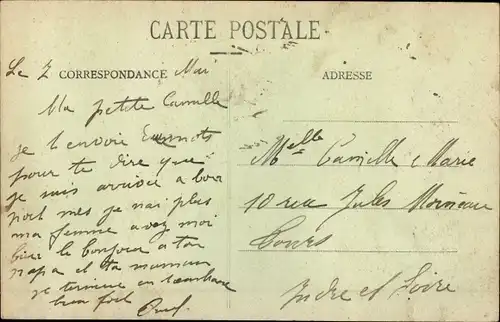 CARTE POSTALE
CORRESPONDANCE
ADRESSE
Le 7 Mai
Ma petite Camille
je t envoie mots
pour te dire que
je suis arrivée a bon
port mes je nai plus
ma femme avez moi
bien le bonjour a ton
papa et ta maman
je termine en
bien fort
Melle Camille Marie
10 rue Jules Moineau
Tours
Indre et Loire